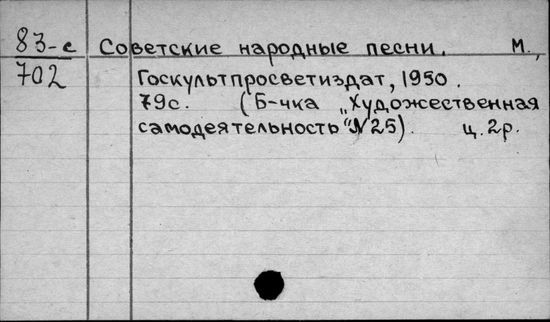 83-е Советские народные песни. М.,
702 Госкультпросветиздат, 1950.
79с. (Б-чка „Художественная
самодеятельность" №25). ц. 2р.